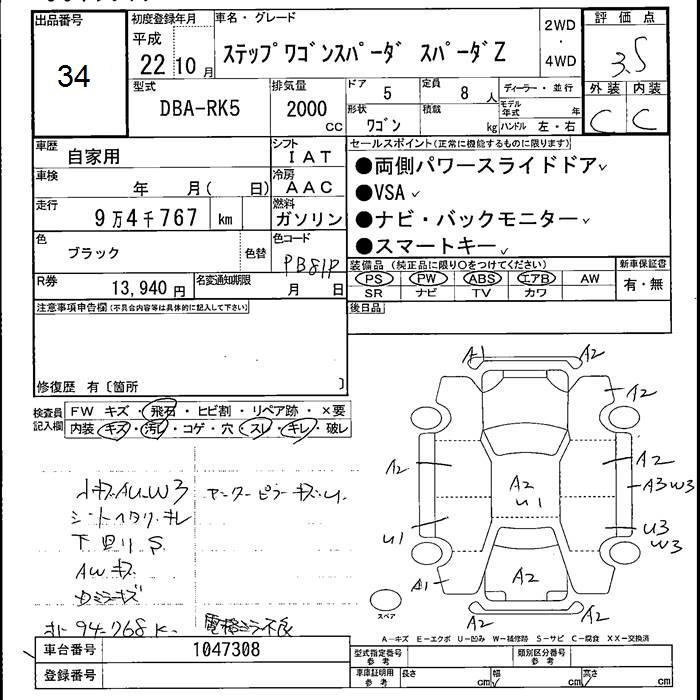 出品番号
34
初度登録年月
平成
22年10月
車名・グレード
ステップワゴンスパーダ スパーダZ
2WD
・
4WD
評価点
3.5
外装 内装
C C
型式
DBA-RK5
排気量
2000
CC
ドア 5
定員 8人
形状 ワゴン
積載 kg
ディーラー・並行
モデル年式 年
ハンドル 左・右
車歴 自家用
車検 年 月( 日)
走行 9万4千767 km
シフト IAT
冷房 AAC
燃料 ガソリン
色 ブラック 色替
色コード PB81P
R券 13,940円
名変通知期限 月 日
セールスポイント(正常に機能するものに限ります)
●両側パワースライドドア✓
●VSA✓
●ナビ・バックモニター✓
●スマートキー✓
装備品(純正品に限り○をつけてください)
PS PW ABS エアB AW
SR ナビ TV カワ
新車保証書
有・無
後日品
注意事項申告欄(不具合内容等は具体的に記入して下さい)
修復歴 有〔箇所 〕
検査員記入欄
FW キズ・飛石・ヒビ割・リペア跡・×要
内装・キズ・汚レ・コゲ・穴・スレ・キレ・破レ
小キズAUW3
シートヘタリ、キレ
下回りS
AWキズ
94-768K
電格ミラー不良
A1 A2
A2
A2 A2
A3W3
A2
U1
U1 U3
W3
A1 A2
A2 A2
スペア
A-キズ E-エクボ U-凹み W-補修跡 S-サビ C-腐食 XX-交換済
車台番号 1047308
登録番号
型式指定番号 参考
類別区分番号 参考
車庫証明用 参考
長さ cm 幅 cm 高さ cm